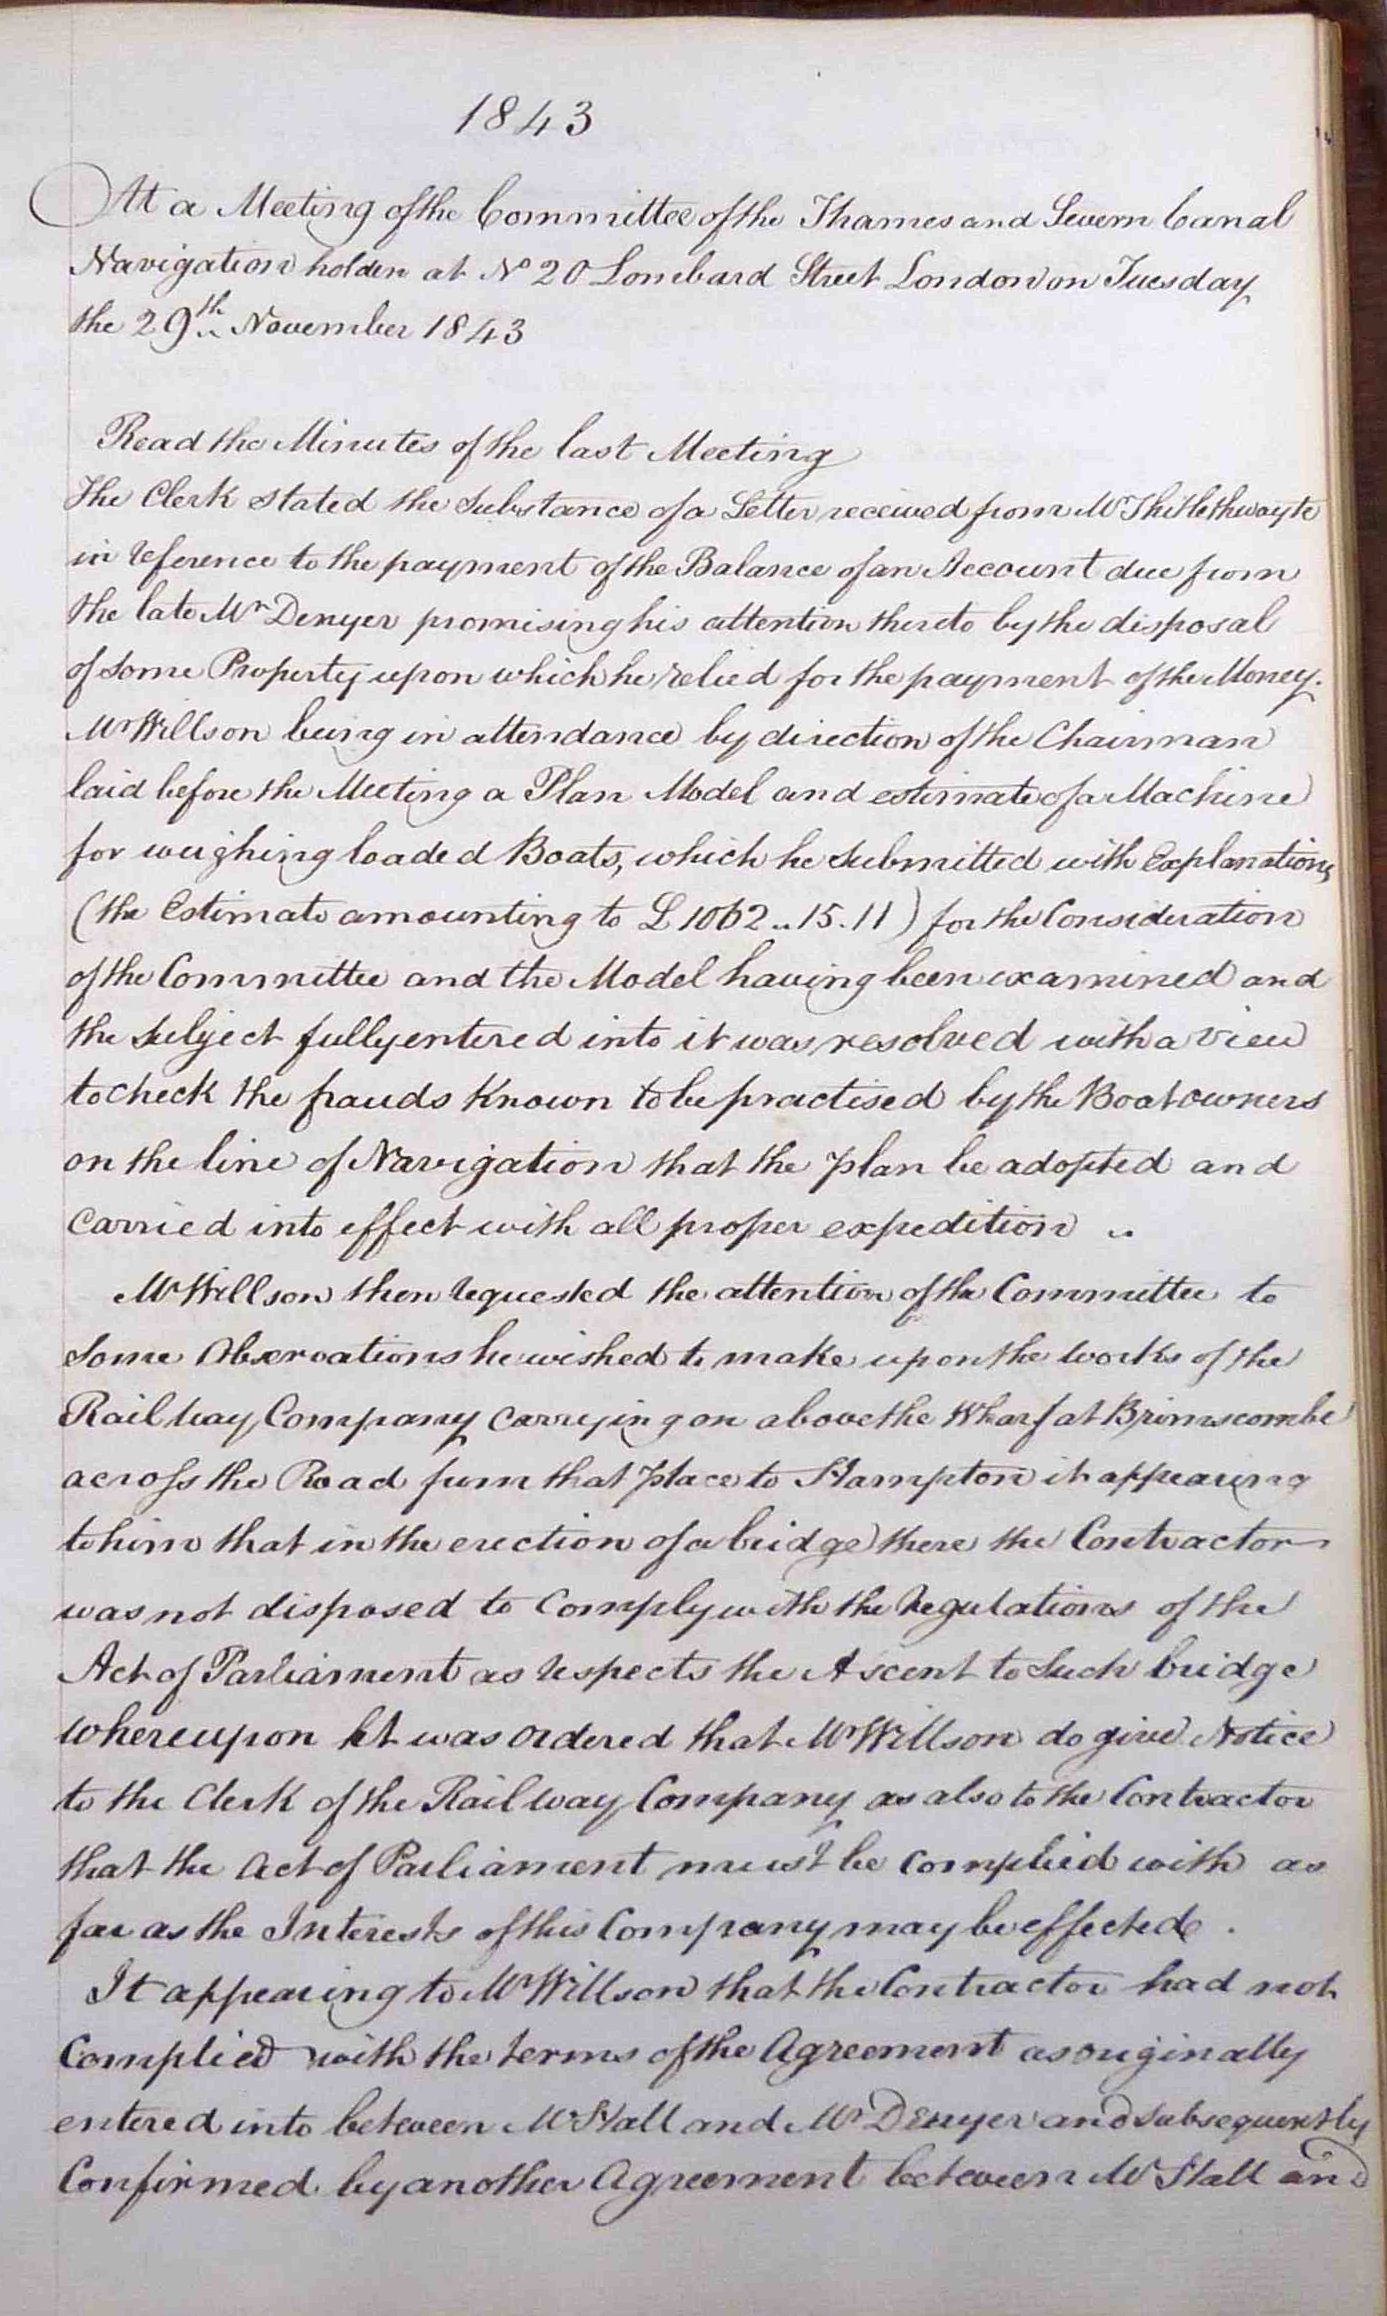 1843
At a Meeting of the Committee of the Thames and Severn Canal
Navigation holden at No 20 Lombard Street London on Tuesday
the 29th November 1843
Read the Minutes of the last Meeting
The Clerk stated the substance of a Letter received from Mr Thistlethwayte
in reference to the payment of the Balance of an Account due from
the late Mr Denyer promising his attention thereto by the disposal
of some Property upon which he relied for the payment of the Money.
Mr Willson being in attendance by direction of the Chairman
laid before the Meeting a Plan Model and estimate of a Machine
for weighing loaded Boats, which he submitted with Explanations
(the Estimate amounting to £1062..15.11) for the Consideration
of the Committee and the Model having been examined and
the subject fully entered into it was resolved with a view
to check the frauds known to be practised by the Boatowners
on the line of Navigation that the plan be adopted and
carried into effect with all proper expedition ..
Mr Willson then requested the attention of the Committee to
some Observations he wished to make upon the works of the
Railway Company carrying on above the Wharf at Brimscombe
across the Road from that place to Hampton it appearing
to him that in the erection of a bridge there the Contractor
was not disposed to Comply with the regulations of the
Act of Parliament as respects the Ascent to such bridge
whereupon It was ordered that Mr Willson do give Notice
to the Clerk of the Railway Company as also to the Contractor
that the Act of Parliament must be complied with as
far as the Interests of this Company may be effected .
It appearing to Mr Willson that the Contractor had not
Complied with the terms of the Agreement as originally
entered into between Mr Hall and Mr Denyer and subsequently
Confirmed by another Agreement between Mr Hall and